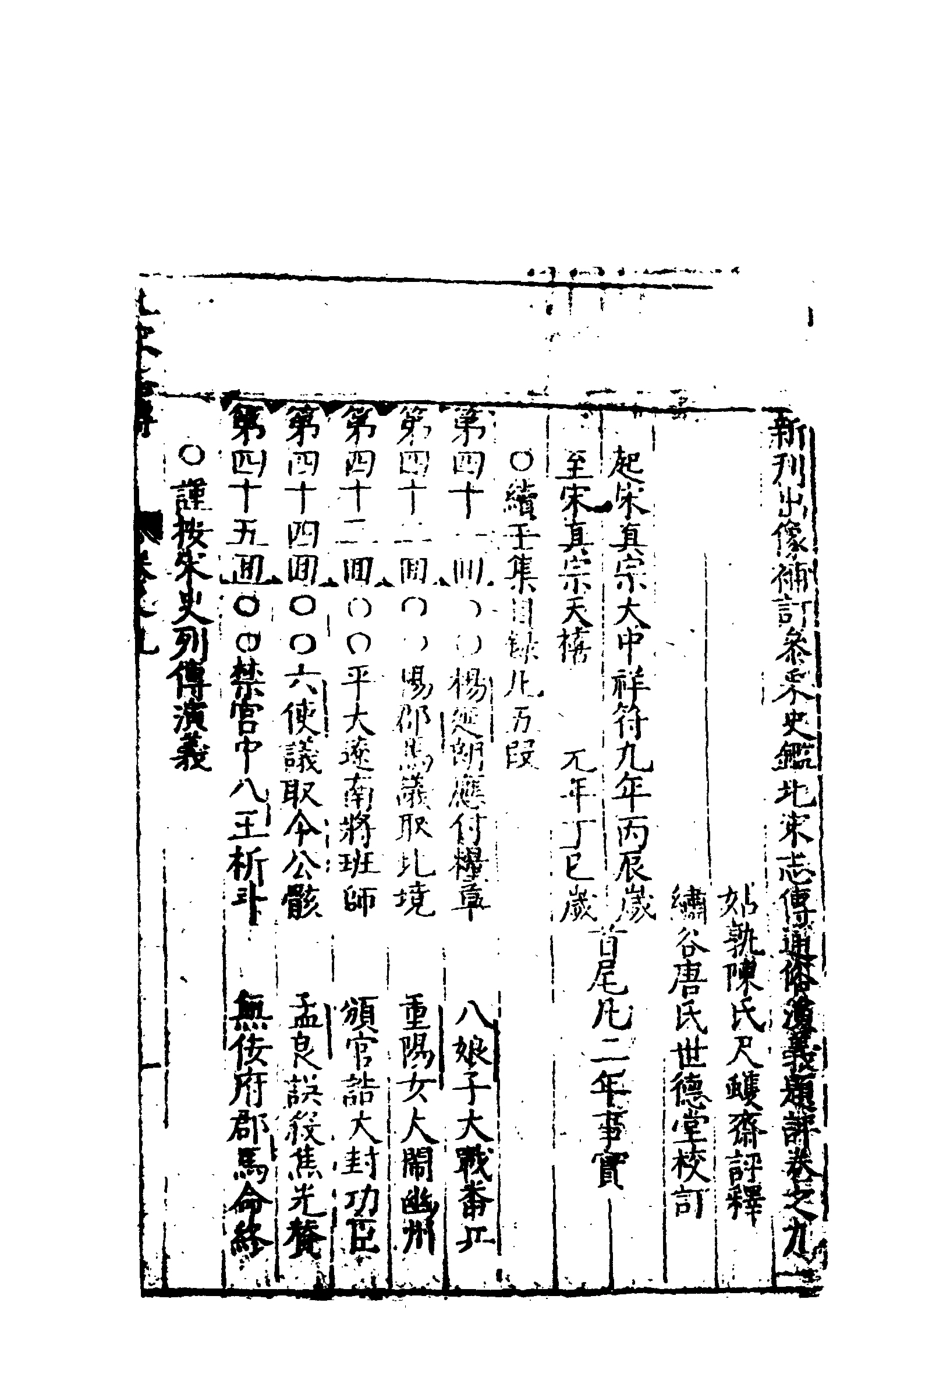 新刊出像補訂參采史鑑北宋志傳通俗演義題評卷之九
姑孰陳氏尺蠖齋評釋
繡谷唐氏世德堂校訂
起宋真宗大中祥符九年丙辰歲
至宋真宗天禧 元年丁巳歲
首尾凡二年事實
○續王集目錄凡五段
第四十一囬○○楊延朗應付糧草 八娘子大戰番兵
第四十二囬○○楊郡馬議取北境 重陽女大鬧幽州
第四十二囬○○平大遼南將班師 頒官誥大封功臣
第四十四囬○○六使議取令公骸 孟良誤殺焦光贊
第四十五囬○○禁宫中八王祈斗 無佞府郡馬命終
○謹按宋史列傳演義
卷之九